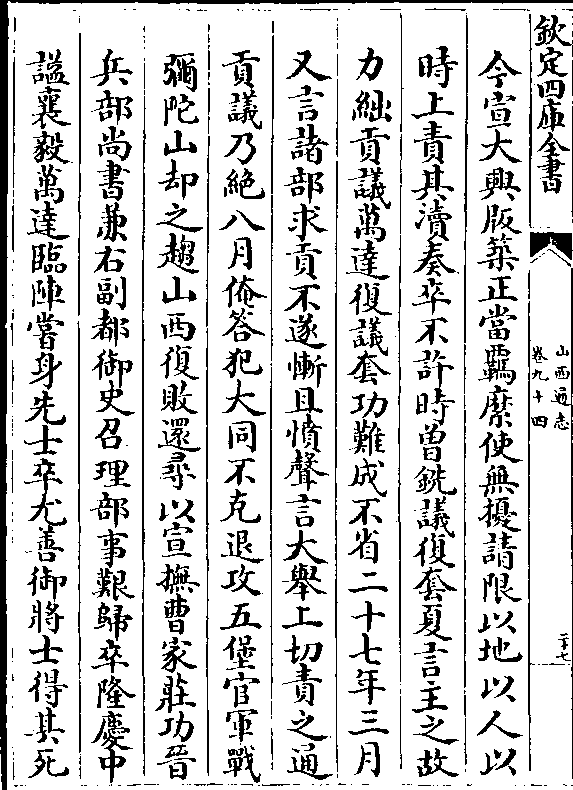 欽定四庫全書
山西通志
卷九十四
二十七
今宣大興版築正當羈縻使無擾請限以地以人以
時上責其瀆奏卒不許時曾銑議復套夏言主之故
力絀貢議萬達復議套功難成不省二十七年三月
又言諸部求貢不遂慚且憤聲言大舉上切責之通
貢議乃絶八月俺答犯大同不克退攻五堡官軍戰
彌陀山却之趨山西復敗還尋以宣撫曹家莊功晉
兵部尚書兼右副都御史召理部事艱歸卒隆慶中
諡襄毅萬達臨陣嘗身先士卒尤善御將士得其死